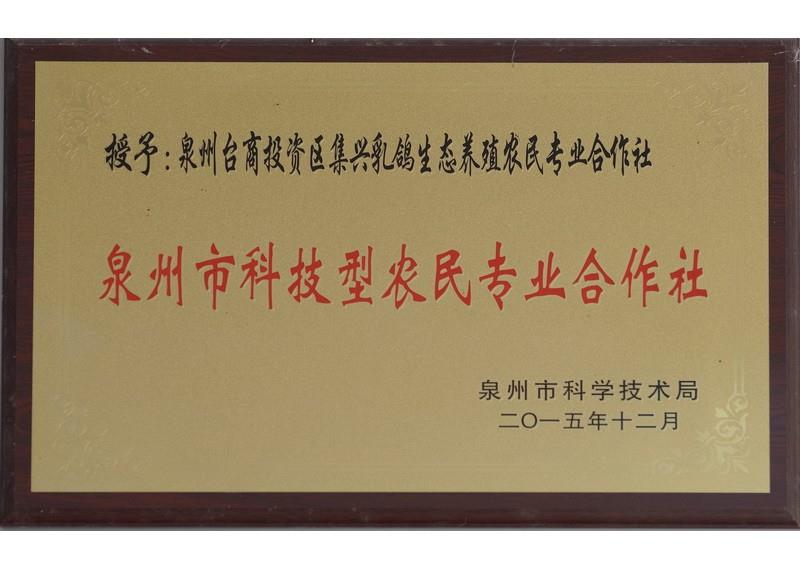 授予：泉州台商投资区集兴乳鸽生态养殖农民专业合作社
泉州市科技型农民专业合作社
泉州市科学技术局
二〇一五年十二月